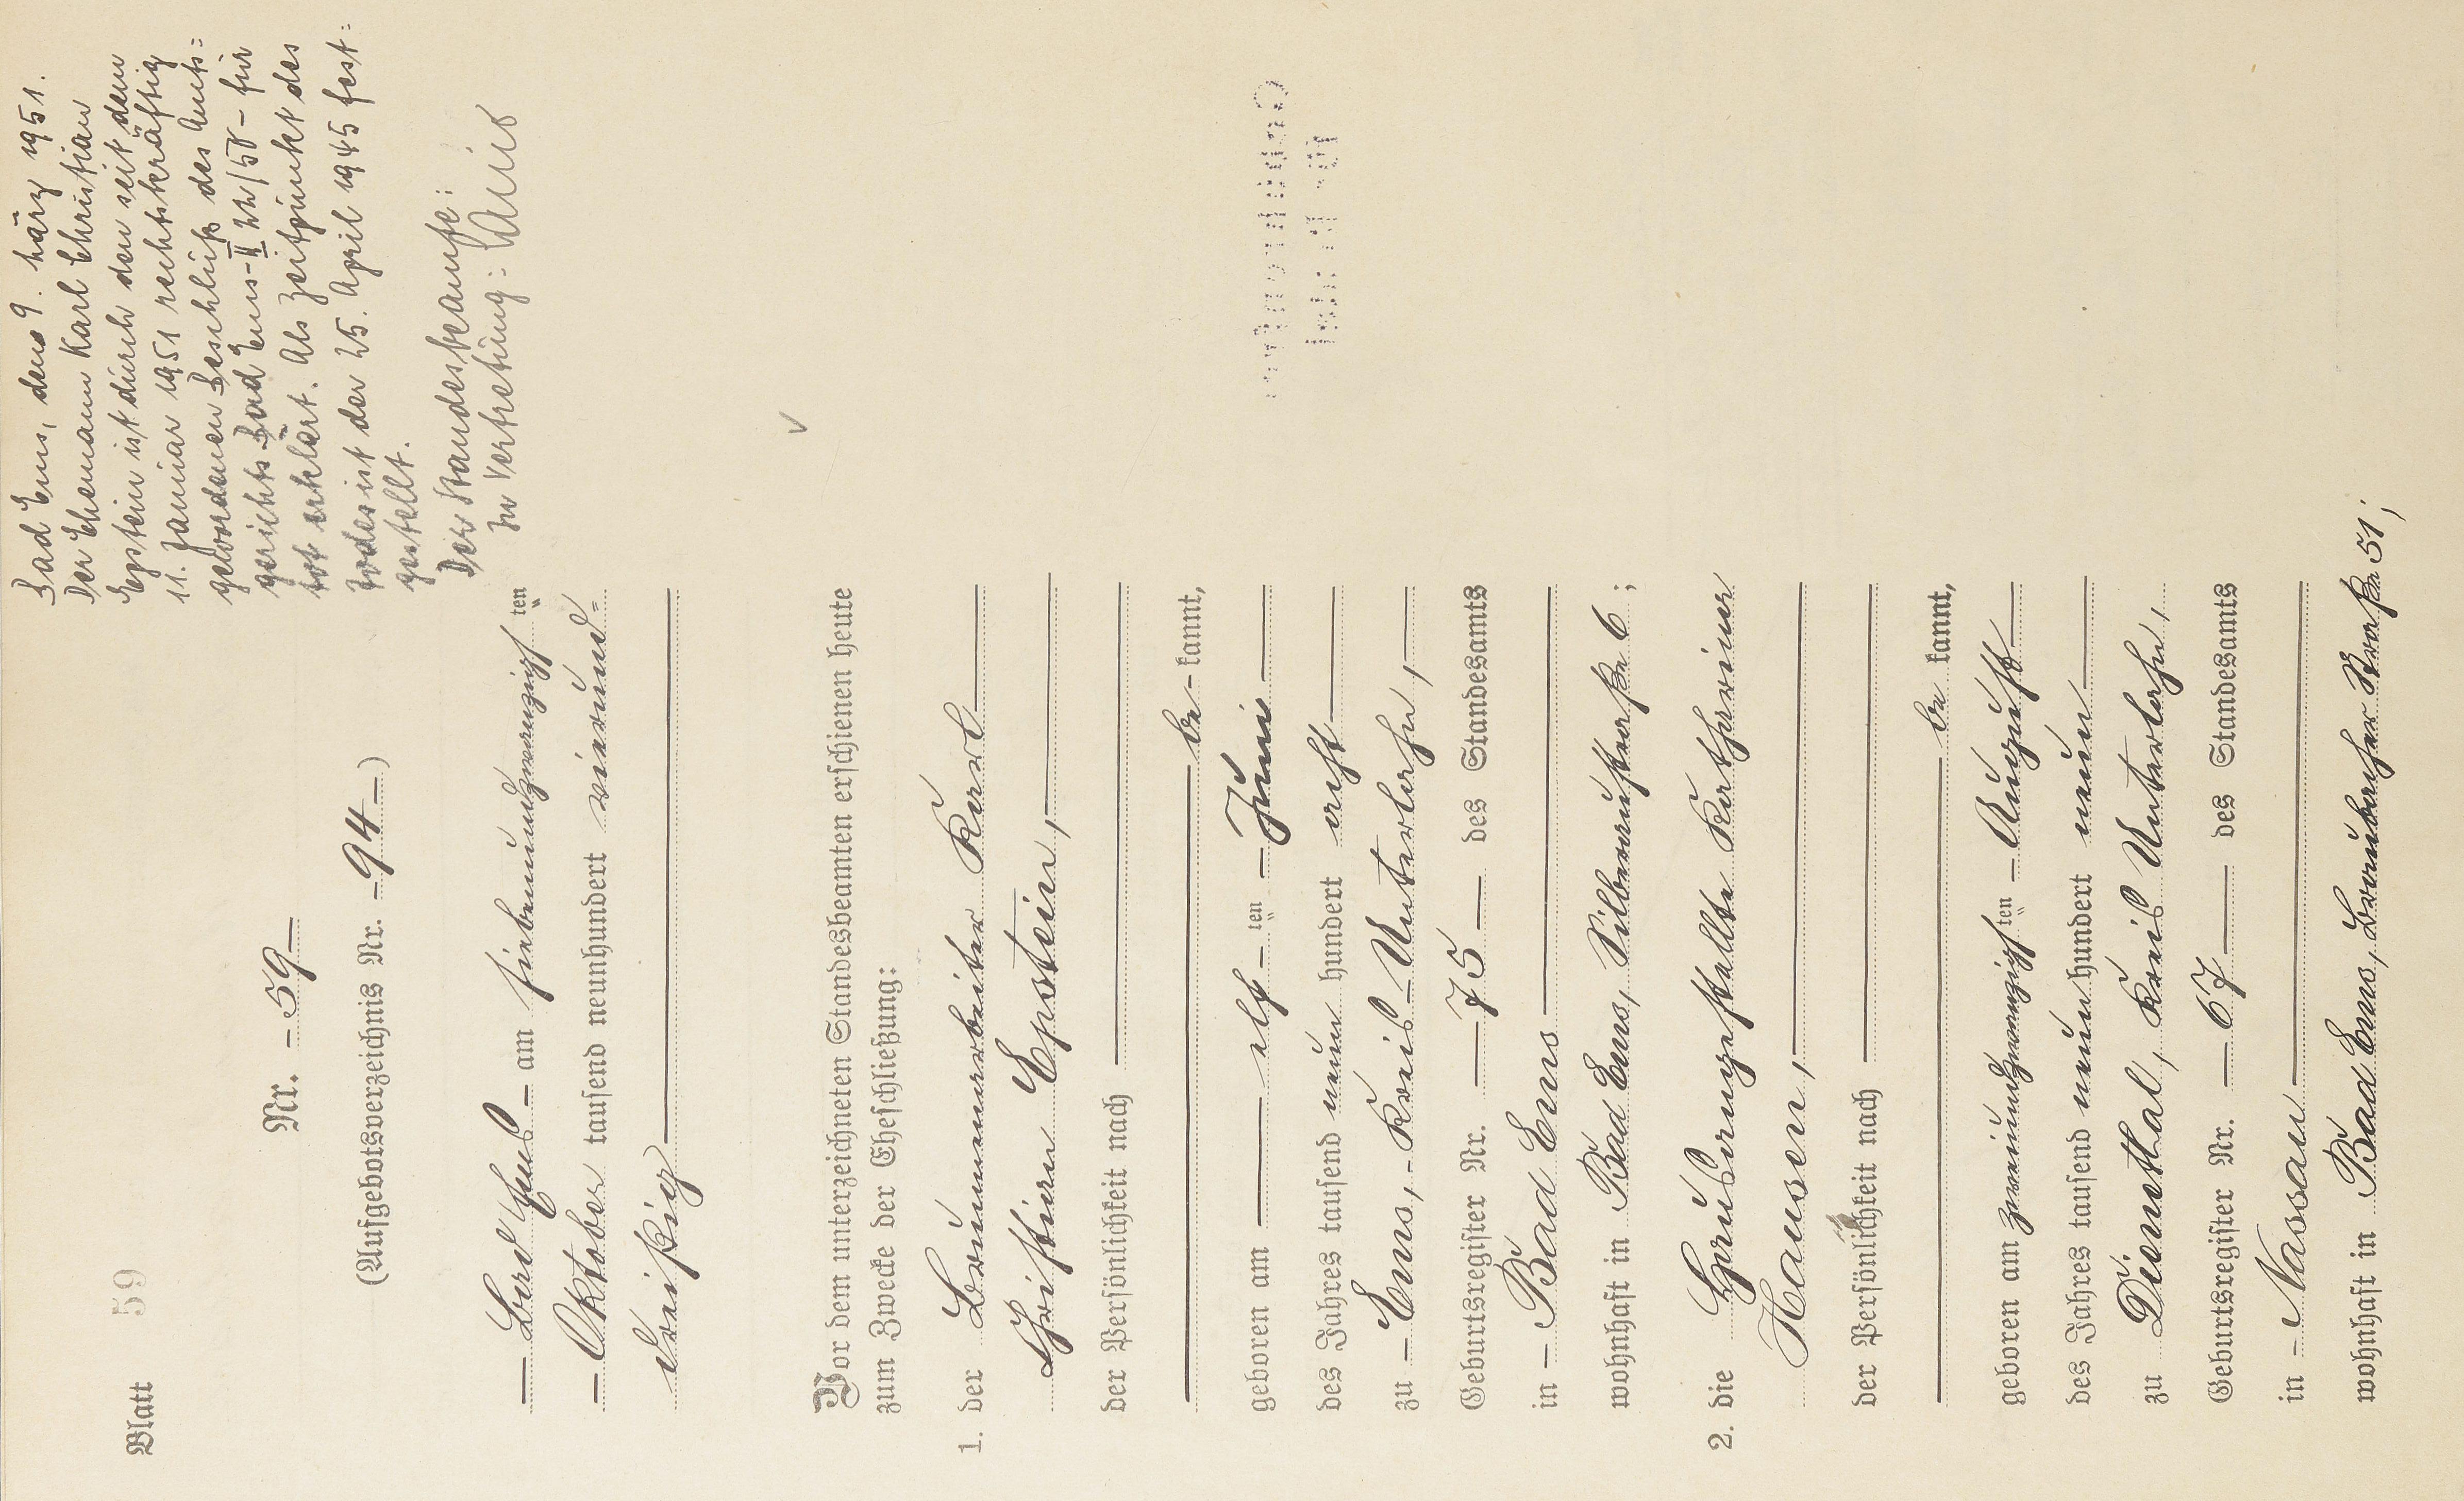 Blatt 59
Bad Ems, den 9. März 1951.
Der Ehemann Karl Christian
Epstein ist durch den seit dem
11. Januar 1951 rechtskräftig
gewordenen Beschluß des Amts=
gerichts Bad Ems - II 22/50 - für
tot erklärt. Als Zeitpunkt des
Todes ist der 25. April 1945 fest=
gestellt.
Der Standesbeamte:
In Vertretung:
Nr. - 59 -
(Aufgebotsverzeichnis Nr. - 94 - )
- Bad Ems - am siebenundzwanzigsten
- Oktober tausend neunhundert vierund=
dreißig
Vor dem unterzeichneten Standesbeamten erschienen heute
zum Zwecke der Eheschließung:
1. der Brunnenarbeiter Karl
Christian Epstein,
der Persönlichkeit nach
be - kannt,
geboren am elf - ten - Juni
des Jahres tausend neun hundert acht
zu - Ems, - Kreis - Unterlahn,
Geburtsregister Nr. 75 - des Standesamts
in - Bad Ems
wohnhaft in Bad Ems, Silberaustraße 6 ;
2. die Hausangestellte Katharina
Hausen,
der Persönlichkeit nach
be kannt,
geboren am zweiundzwanzigsten - August
des Jahres tausend neun hundert neun
zu Dienethal, Kreis Unterlahn,
Geburtsregister Nr. - 67 - des Standesamts
in - Nassau
wohnhaft in Bad Ems, Braubacher Straße 51;